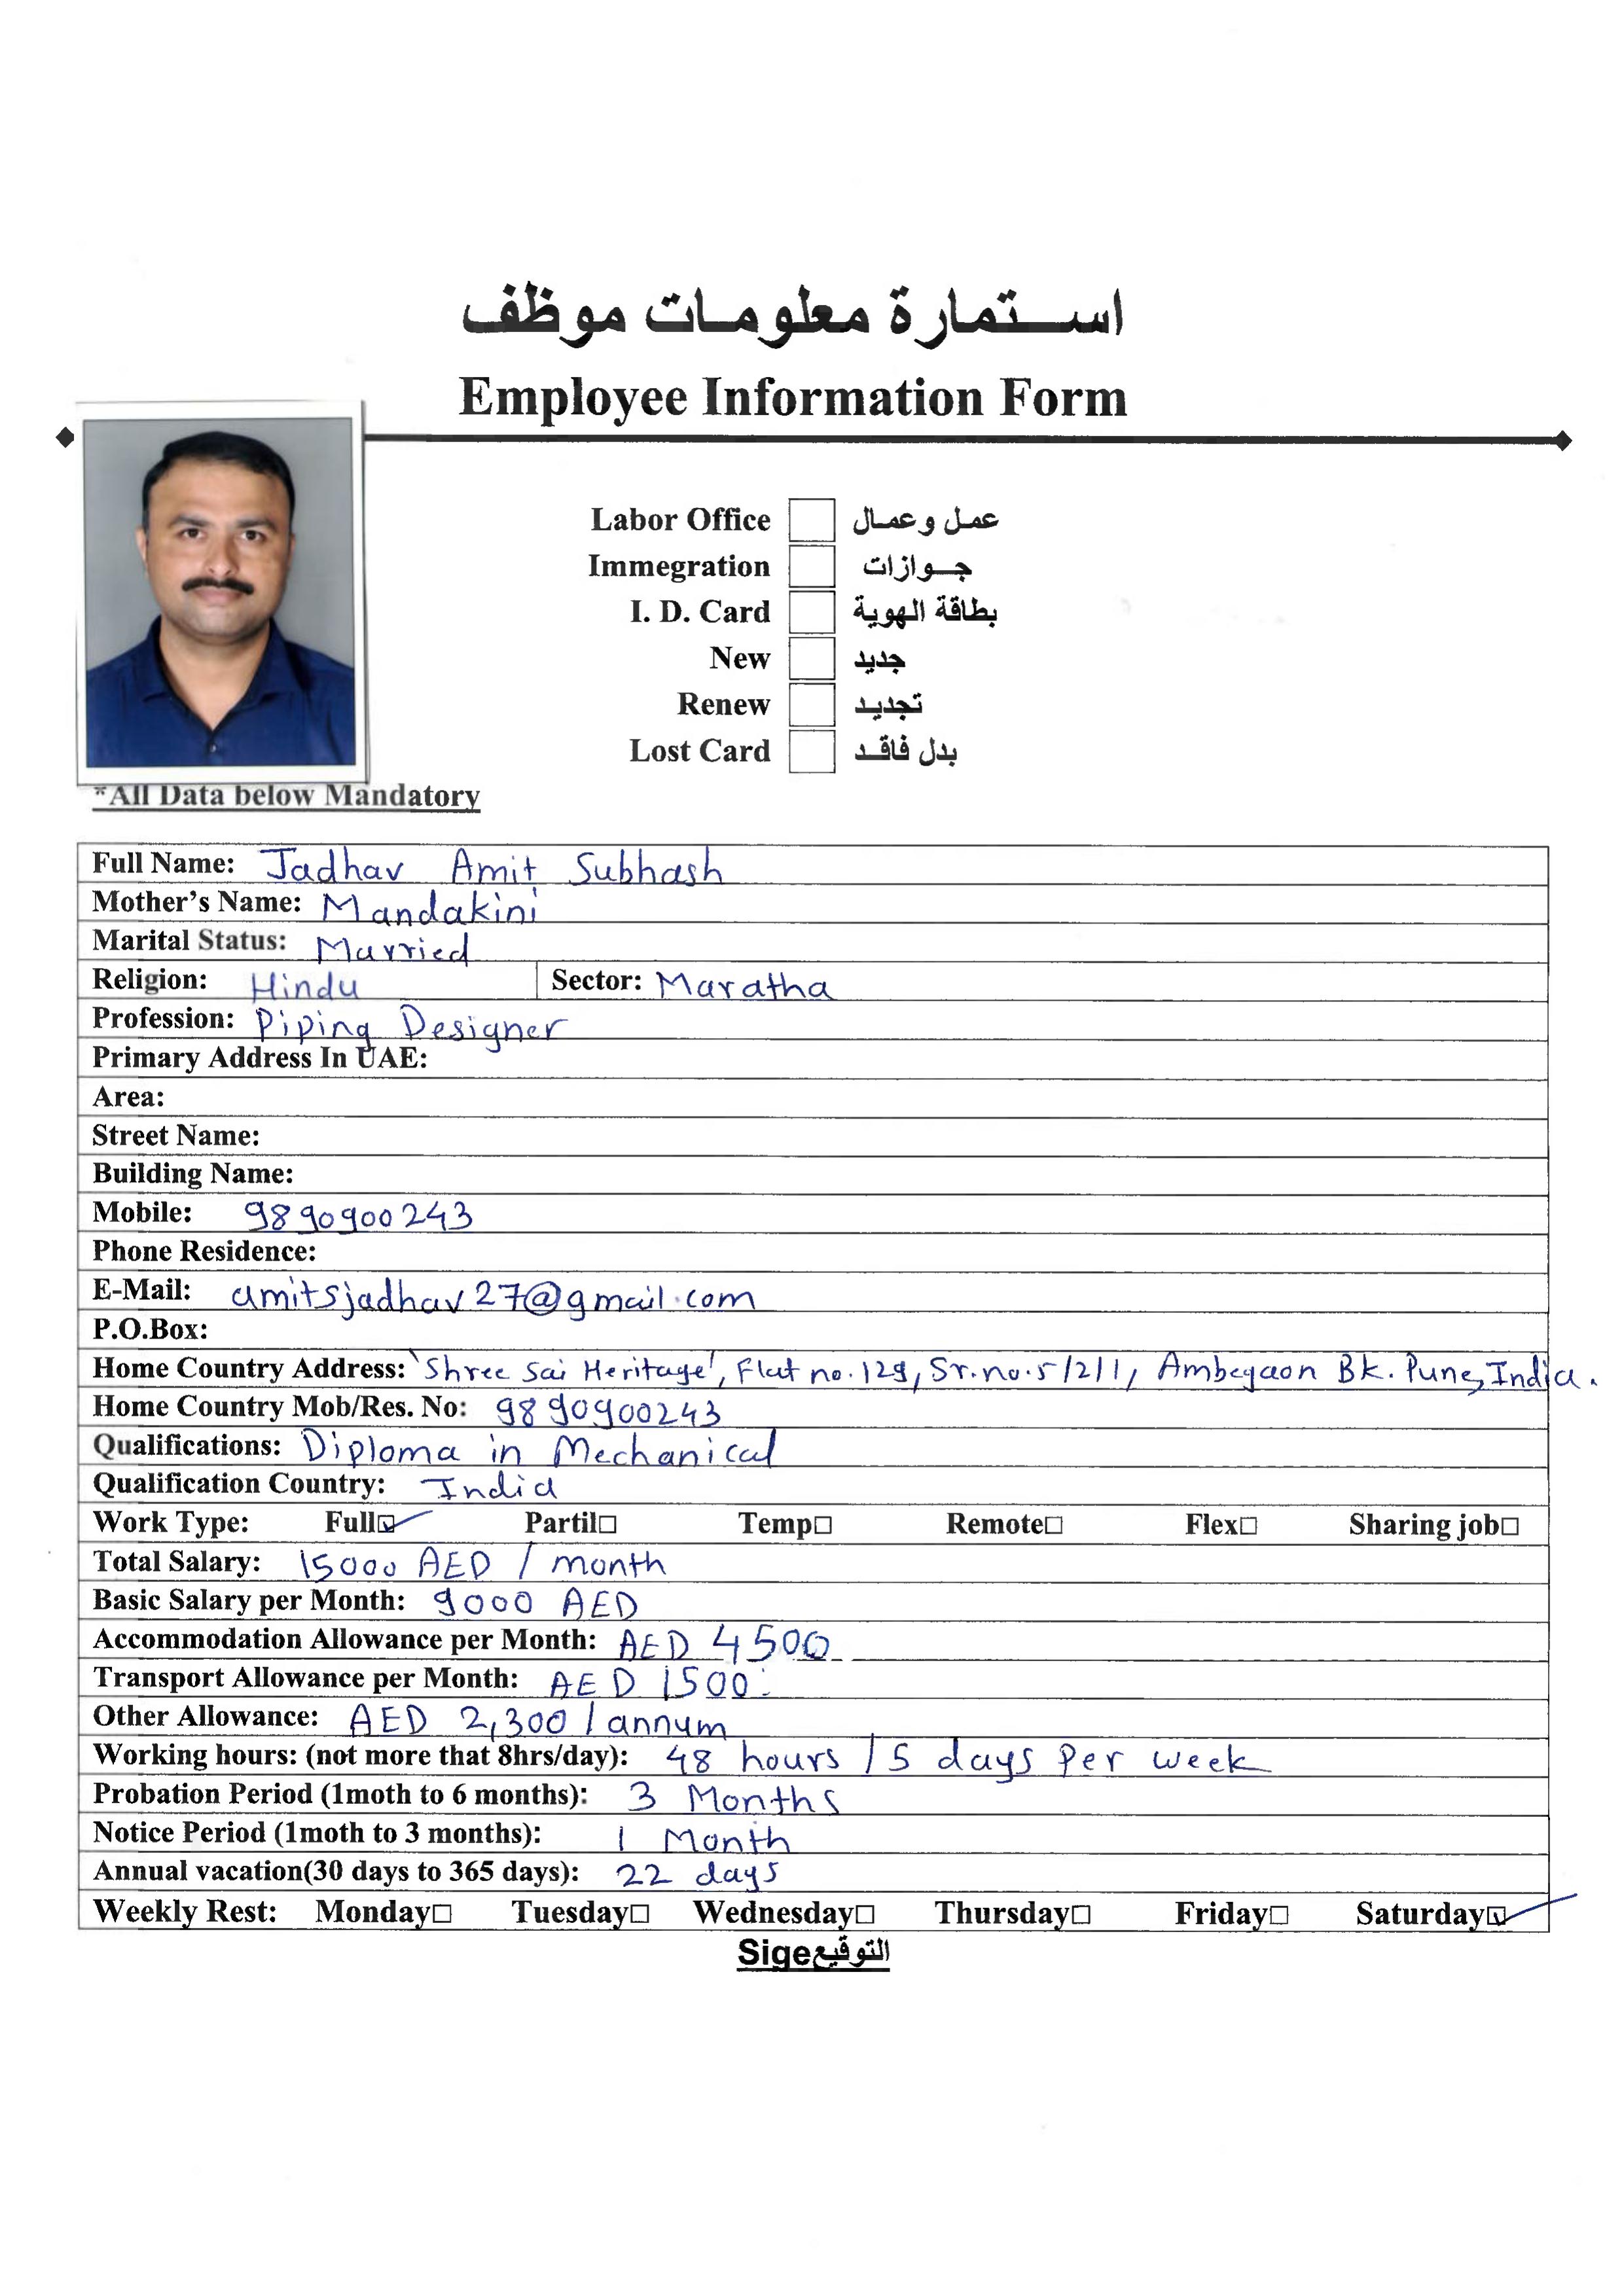 استمارة معلومات موظف
Employee Information Form
Labor Office عمل وعمال
Immegration جوازات
I. D. Card بطاقة الهوية
New جديد
Renew تجديد
Lost Card بدل فاقد
*All Data below Mandatory
Full Name: Jadhav Amit Subhash
Mother's Name: Mandakini
Marital Status: Married
Religion: Hindu Sector: Maratha
Profession: Piping Designer
Primary Address In UAE:
Area:
Street Name:
Building Name:
Mobile: 9890900243
Phone Residence:
E-Mail: amitsjadhav27@gmail.com
P.O.Box:
Home Country Address: 'Shree Sai Heritage', Flat no.129, Sr.no.5/2/1, Ambegaon Bk. Pune, India.
Home Country Mob/Res. No: 9890900243
Qualifications: Diploma in Mechanical
Qualification Country: India
Work Type: Full☑ Partil□ Temp□ Remote□ Flex□ Sharing job□
Total Salary: 15000 AED / month
Basic Salary per Month: 9000 AED
Accommodation Allowance per Month: AED 4500
Transport Allowance per Month: AED 1500
Other Allowance: AED 2,300 / annum
Working hours: (not more that 8hrs/day): 48 hours / 5 days per week
Probation Period (1moth to 6 months): 3 Months
Notice Period (1moth to 3 months): 1 Month
Annual vacation(30 days to 365 days): 22 days
Weekly Rest: Monday□ Tuesday□ Wednesday□ Thursday□ Friday□ Saturday☑
Sigeالتوقيع